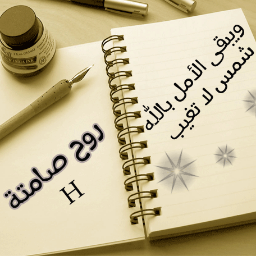 ويبقى الأمل بالله
شمس لا تغيب
روح صامتة
H